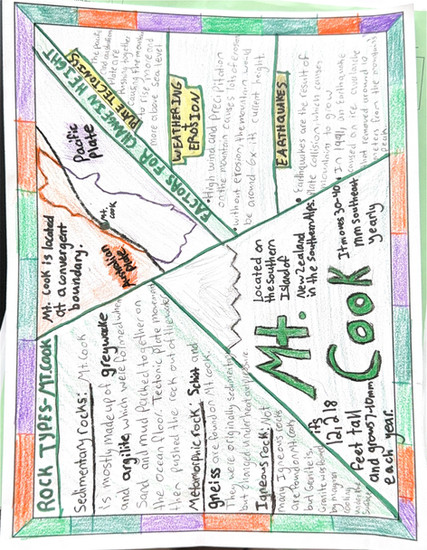 ROCK TYPES-MT.COOK
Sedimentary rocks: Mt.Cook
is mostly made up of greywake
and argilite which were formed when
Sand and mud Packed together on
the ocean floor. Tectonic plate movement
then pushed the rock out of the water
Metamorphic rock: Schist and
gneiss are found on Mt.Cook.
They were originally sedimentary
but changed under heat and pressure
Igneous rock: Not
many Igneous rocks
are found on Mt.Cook
but
by magma
cooling
Mt. Cook is located
at a convergent
boundary.
Pacific
Plate
Mt.
Cook
Australian
Plate
FACTORS FOR CHANGE IN HEIGHT
PLATE TECTONICS
The pacific
and australian
Plate are
Pushing together
Causing the mountain
to rise more and
more above sea level
WEATHERING
EROSION
High wind and Precipitation
on the mountain causes lots of erosion
without erosion, the mountain would
be around 6x its current height.
EARTHQUAKES
Earthquakes are the result of
Plate collision, which causes
mountains to grow
In 1991, an Earthquake
caused an ice avalanche
that removed around
from the mountain's
Peak
Mt.
Cook
Located on
the Southern
Island of
New Zealand
in the Southern Alps.
It moves 30-40
mm southeast
yearly
its
12,218
feet tall
and grows 7-10mm
each year.